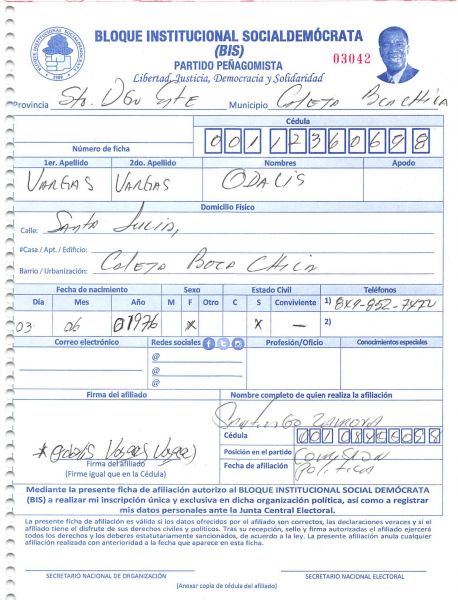 BLOQUE INSTITUCIONAL SOCIALDEMÓCRATA
(BIS)
PARTIDO PEÑAGOMISTA
Libertad, Justicia, Democracia y Solidaridad
03042
Provincia Sto. Dgo Este Municipio Caleta Boca Chica
Cédula
Número de ficha 001 1236069 8
1er. Apellido 2do. Apellido Nombres Apodo
VARGAS VARGAS ODALIS
Domicilio Físico
Calle: Santa Lucia,
#Casa / Apt. / Edificio:
Barrio / Urbanización: Caleta Boca Chica
Fecha de nacimiento Sexo Estado Civil Teléfonos
Día Mes Año M F Otro C S Conviviente 1) 849-852-7472
03 06 1976 X X — 2)
Correo electrónico Redes sociales Profesión/Oficio Conocimientos especiales
@
@
@
Firma del afiliado Nombre completo de quien realiza la afiliación
Santiago Zamora
Cédula 001 0845509 8
Odalis Vargas Vargas
Posición en el partido Comision
Firma del afiliado
(Firme igual que en la Cédula)
Fecha de afiliación Politica
Mediante la presente ficha de afiliación autorizo al BLOQUE INSTITUCIONAL SOCIAL DEMÓCRATA
(BIS) a realizar mi inscripción única y exclusiva en dicha organización política, así como a registrar
mis datos personales ante la Junta Central Electoral.
La presente ficha de afiliación es válida si los datos ofrecidos por el afiliado son correctos, las declaraciones veraces y si el
afiliado tiene el disfrute de sus derechos civiles y políticos. Tras su recepción, sello y firma autorizados el afiliado ejercerá
todos los derechos y los deberes estatutariamente sancionados, de acuerdo a la ley. La presente afiliación anula cualquier
afiliación realizada con anterioridad a la fecha que aparece en esta ficha.
SECRETARIO NACIONAL DE ORGANIZACIÓN SECRETARIO NACIONAL ELECTORAL
(Anexar copia de cédula del afiliado)